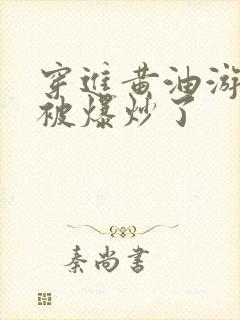 穿進黄油游
被爆炒了
秦尚書